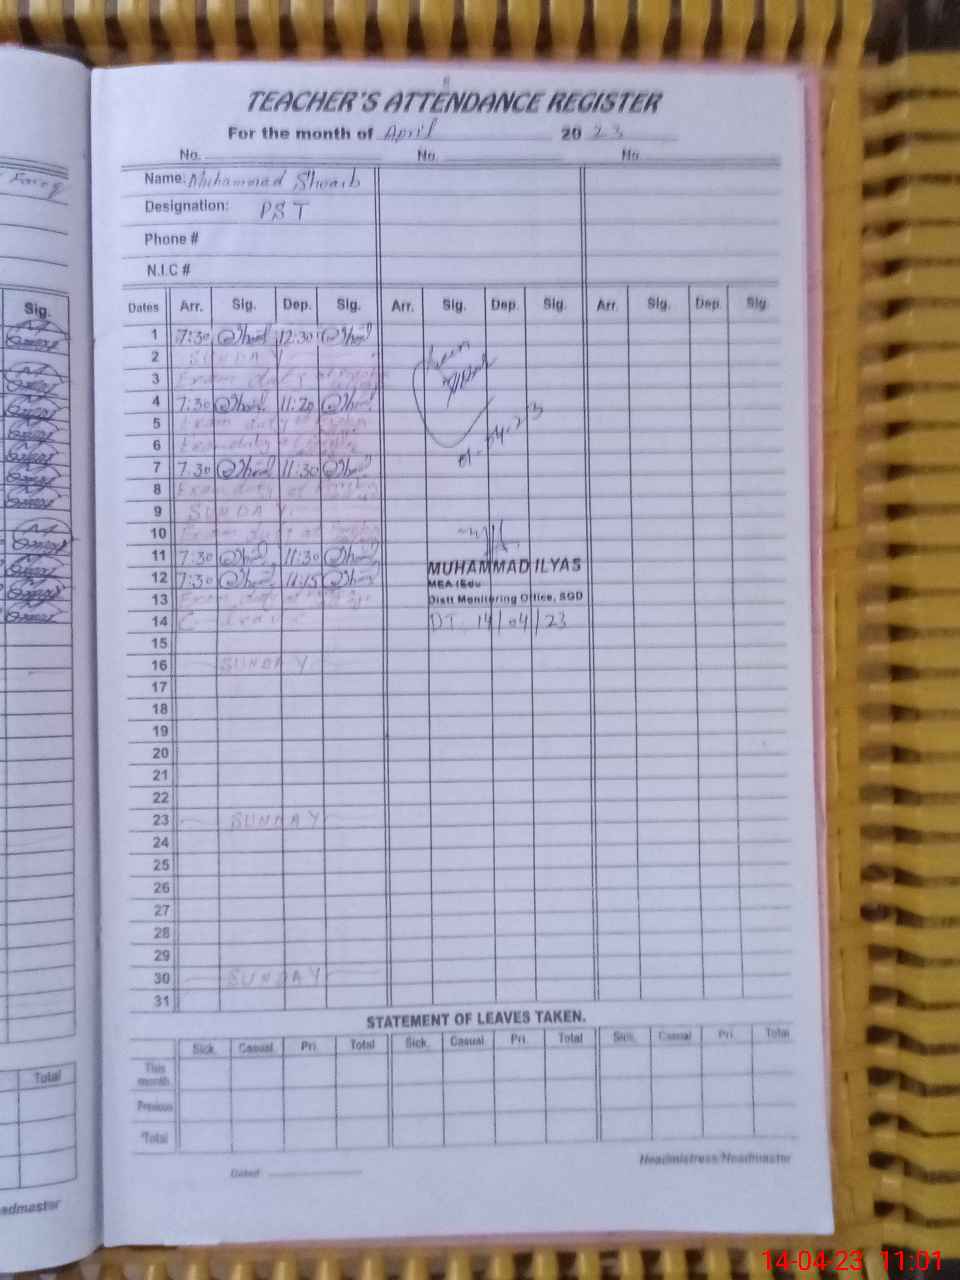 TEACHER'S ATTENDANCE REGISTER
For the month of April 2023
No. No. No.
Name: Muhammad Shoaib
Designation: PST
Phone #
N.I.C #
Sig.
Dates Arr. Sig. Dep. Sig. Arr. Sig. Dep. Sig. Arr. Sig. Dep. Sig.
1 7:30 12:30
2 SUNDAY
3 Exam duty at
4 7:30 11:20
5 Exam duty
6 Exam duty
7 7:30 11:30
8 Exam duty at
9 SUNDAY
10 Exam duty at
11 7:30 11:30
12 7:30 11:15
MUHAMMAD ILYAS
MEA (Edu
Distt Monitoring Office, SGD
13 Exam duty at
14 C. leave DT. 14/04/23
15
16 SUNDAY
17
18
19
20
21
22
23 SUNDAY
24
25
26
27
28
29
30 SUNDAY
31
STATEMENT OF LEAVES TAKEN.
Sick. Casual Pri. Total Sick. Casual Pri. Total Sick. Casual Pri. Total
This month
Previous
Total
Total
Headmistress/Headmaster
Dated
eadmaster
14-04-23 11:01